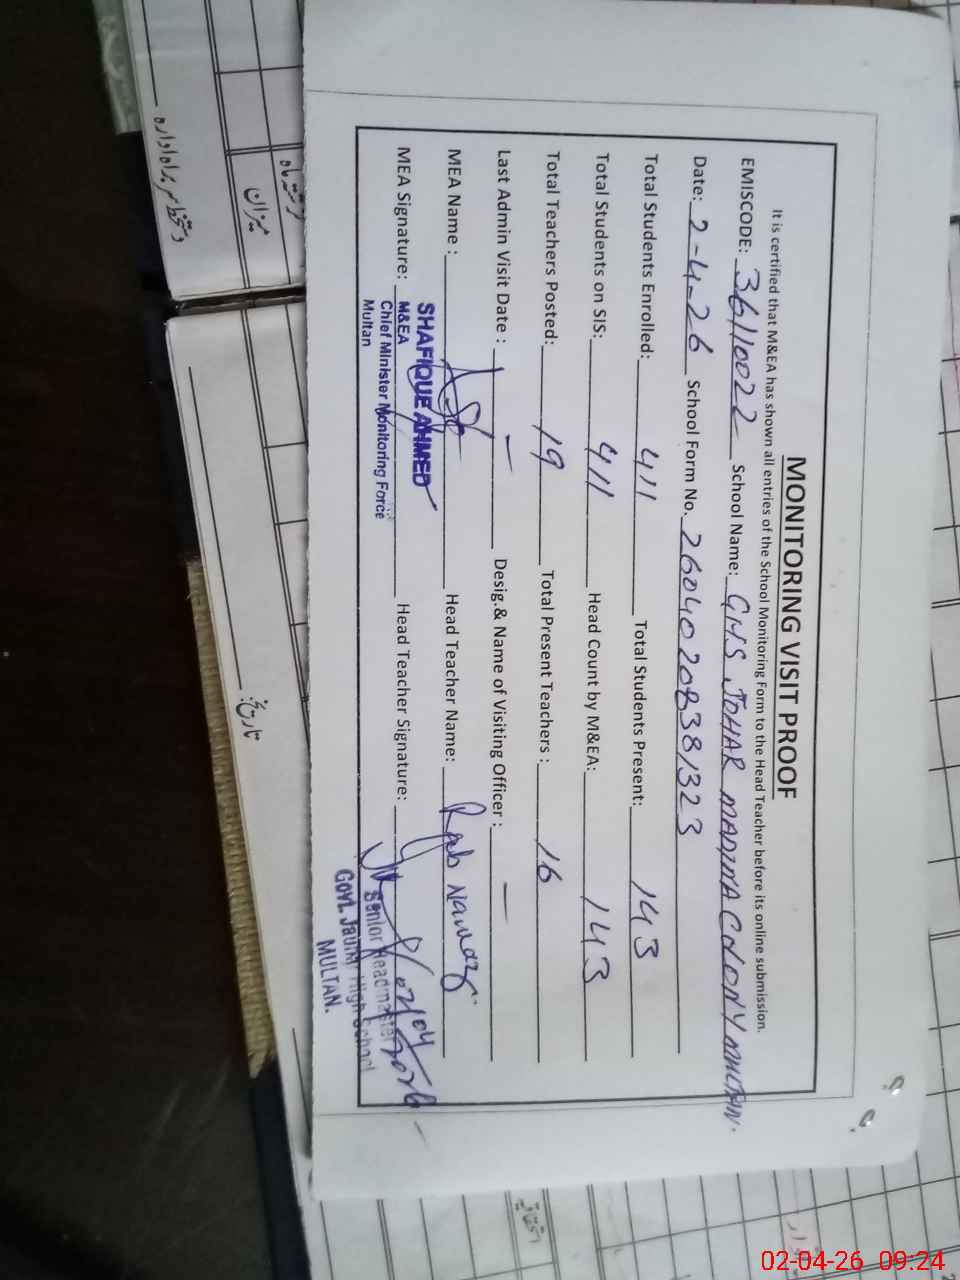 MONITORING VISIT PROOF
It is certified that M&EA has shown all entries of the School Monitoring Form to the Head Teacher before its online submission.
EMISCODE: 36110022 School Name: GHS JOHAR MADINA COLONY MULTAN.
Date: 2-4-26 School Form No. 26040208381323
Total Students Enrolled: 411 Total Students Present: 143
Total Students on SIS: 411 Head Count by M&EA: 143
Total Teachers Posted: 19 Total Present Teachers : 16
Last Admin Visit Date : — Desig.& Name of Visiting Officer : —
MEA Name : Head Teacher Name: Rab Nawaz.
SHAFIQUE AHMED
MEA Signature: M&EA Head Teacher Signature:
Chief Minister Monitoring Force
Multan
02/04/2026
Senior Headmaster
Govt. High School
MULTAN.
گزشتہ ماہ
میزان
دستخط سربراہ ادارہ
تاریخ:
02-04-26 09:24